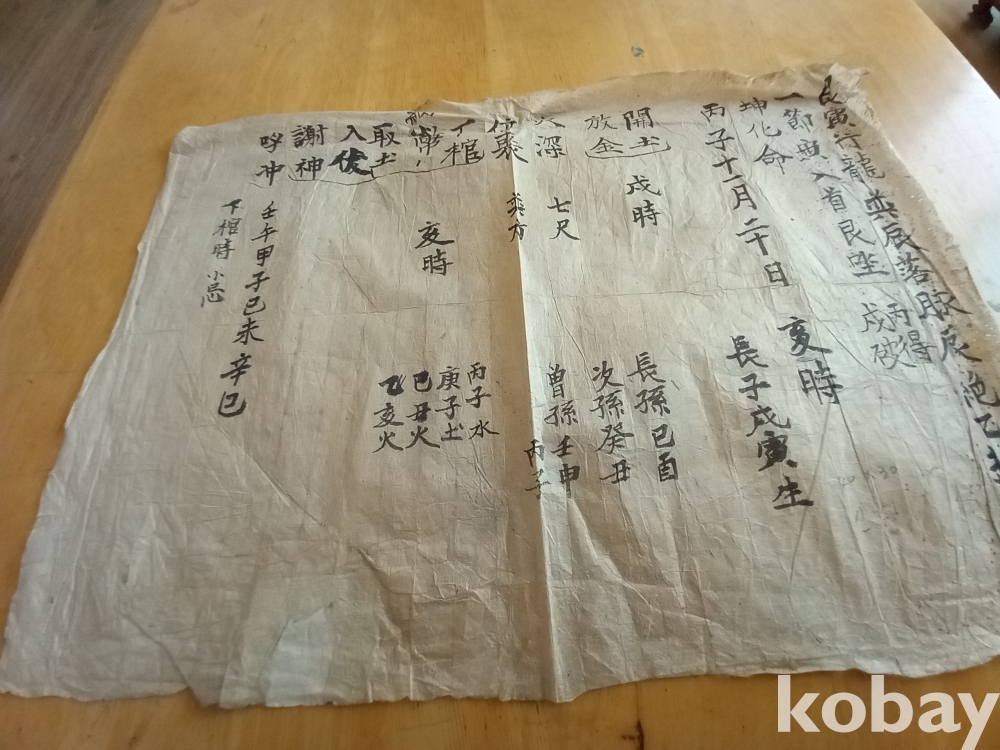 艮寅行龍 巽辰落脉 辰
一節 巽入首艮坐 丙得
戌破
坤化命
丙子十一月二十日 亥時
長子戊寅生
開土
放金 戌時
長孫己酉
次孫癸丑
深 七尺
曾孫壬申
丙子
巽方
下棺
亥時
丙子水
庚子土
己丑火
乙亥火
取土
入
謝神
呼冲 壬午甲子己未辛巳
下棺時小忌
kobay